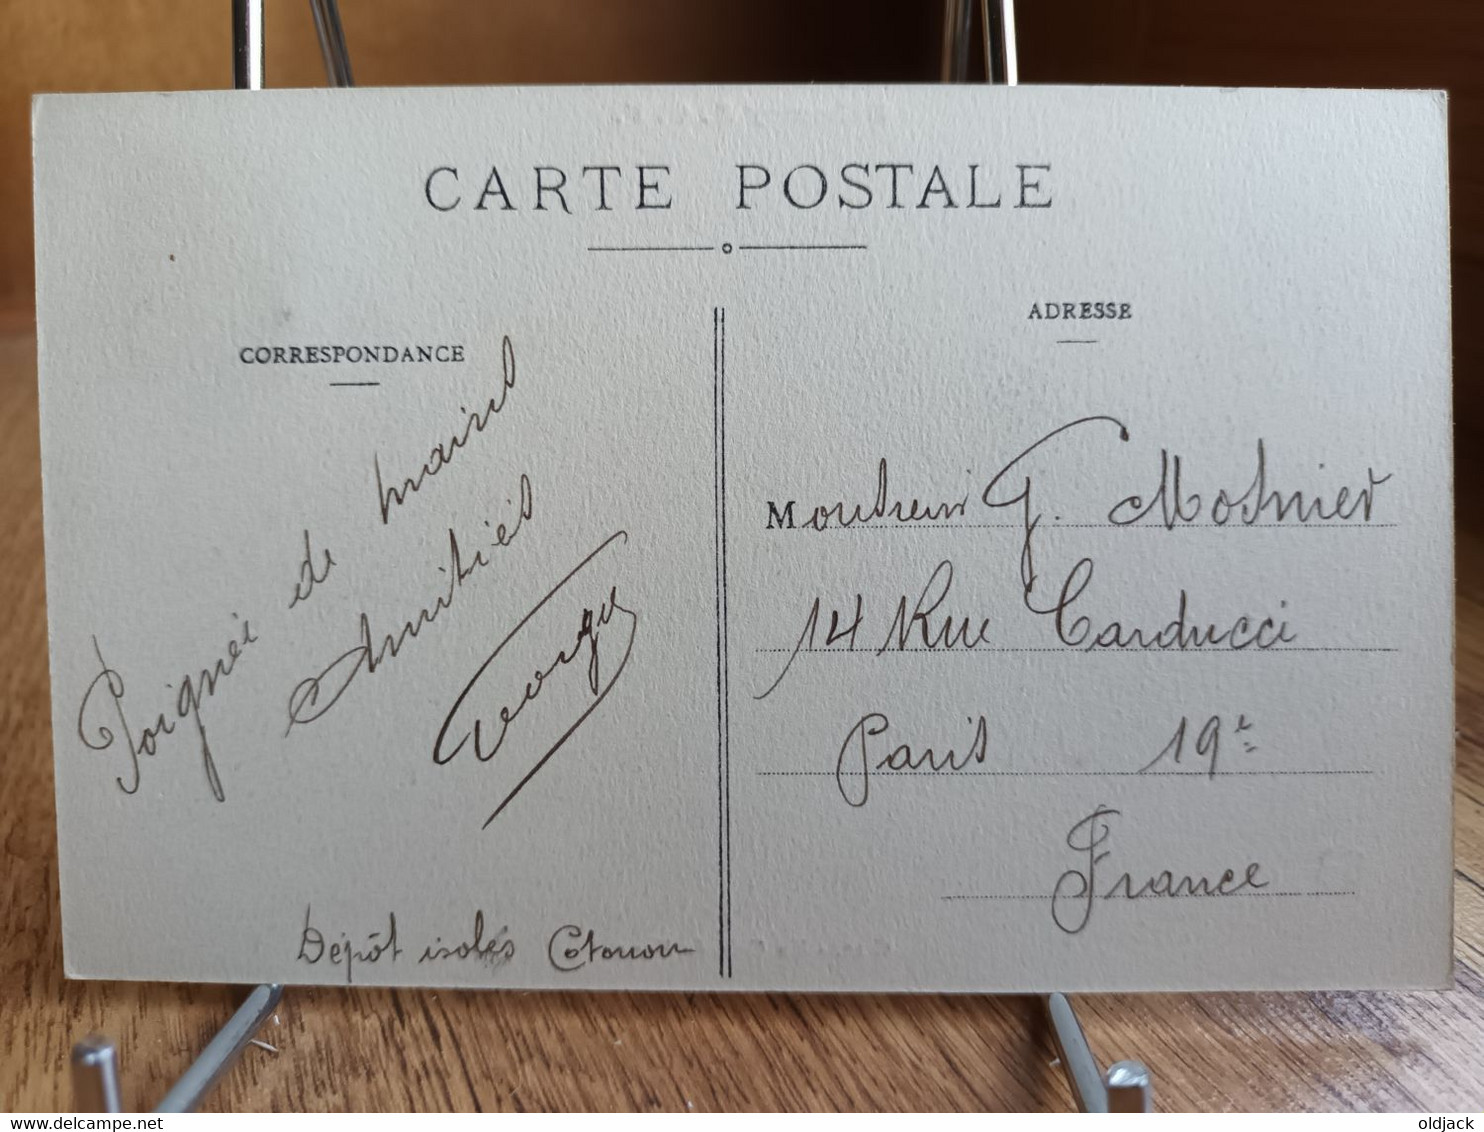 CARTE POSTALE
CORRESPONDANCE
Poignée de mains
Amitiés
Georges
Dépôt isolés Cotonou
ADRESSE
Monsieur G. Mosnier
14 Rue Carducci
Paris 19e
France
oldjack